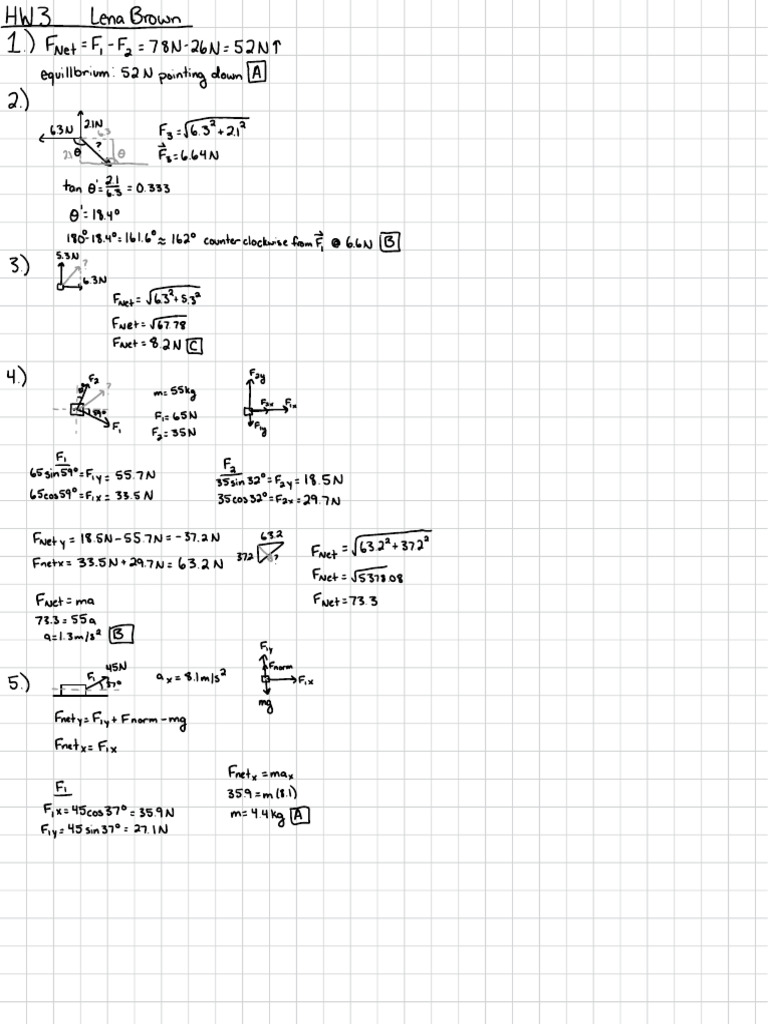 HW3 Lena Brown
1.) F_Net = F_1 - F_2 = 78N - 26N = 52N↑
equillbrium: 52N pointing down A
2.)
6.3N 2.1N 6.3
2.1 θ ? θ
F_3 = √6.3² + 2.1²
F⃗_3 = 6.64N
tan θ' = 2.1/6.3 = 0.333
θ' = 18.4°
180° - 18.4° = 161.6° ≈ 162° counter clockwise from F⃗_1 @ 6.6N B
3.)
5.3N ?
6.3N
F_Net = √6.3² + 5.3²
F_Net = √67.78
F_Net = 8.2N C
4.)
F_2 ?
59° F_1
m = 55kg
F_1 = 65N
F_2 = 35N
F_2y
F_2x F_1x
F_1y
F_1
65 sin 59° = F_1y = 55.7N
65 cos 59° = F_1x = 33.5N
F_2
35 sin 32° = F_2y = 18.5N
35 cos 32° = F_2x = 29.7N
F_Net y = 18.5N - 55.7N = -37.2N
F_net x = 33.5N + 29.7N = 63.2N
63.2
37.2 ?
F_Net = √63.2² + 37.2²
F_Net = √5378.08
F_Net = 73.3
F_Net = ma
73.3 = 55a
a = 1.3m/s² B
5.)
45N
F_1 37°
a_x = 8.1m/s²
F_1y
F_norm
F_1x
mg
F_net y = F_1y + F_norm - mg
F_net x = F_1x
F_1
F_1x = 45 cos 37° = 35.9N
F_1y = 45 sin 37° = 27.1N
F_net x = ma_x
35.9 = m(8.1)
m = 4.4kg A